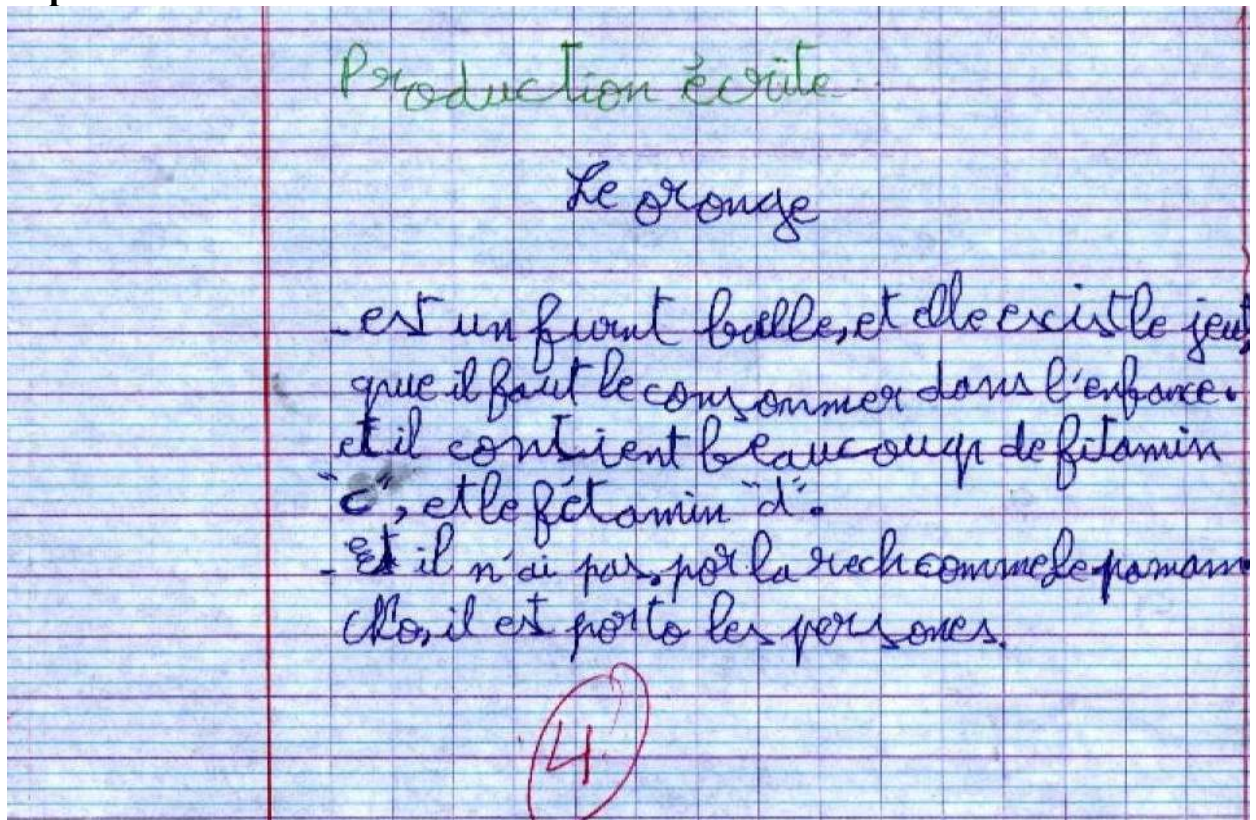 Production écrite
Le oronge
- est un fruint balle, et elle existle jeut,
que il faut le consonmer dans l'enfance.
et il contient beaucoup de fitamin
"c", et le fétamin "d".
- Et il n'ai pas, por la rech comme le pamam
cho, il est por to les persones.
4